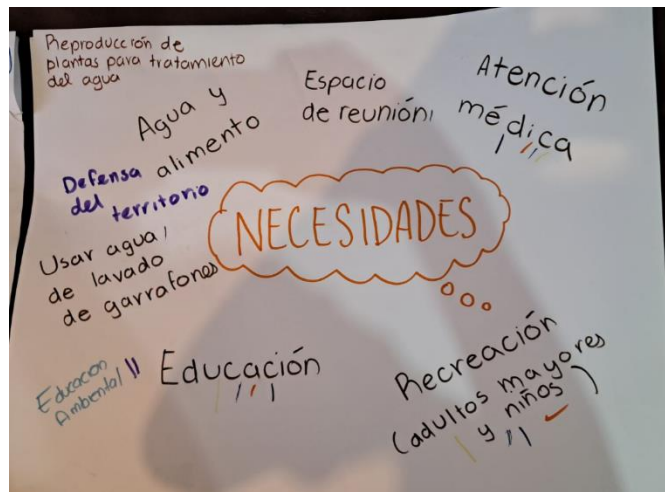 Reproducción de
plantas para tratamiento
del agua
Agua y
alimento
Espacio
de reunión
Atención
médica
Defensa
del territorio
NECESIDADES
Usar agua
de lavado
de garrafones
Educación
Ambiental
Educación
Recreación
(adultos mayores
y niños)